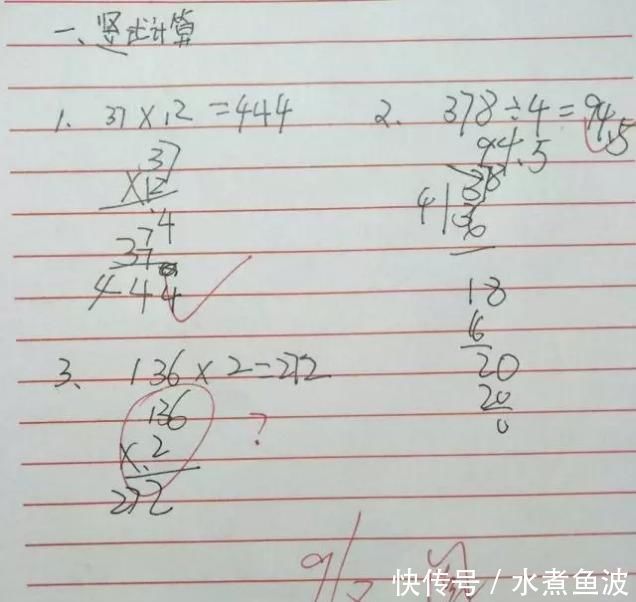 一、竖式计算
1. 37×12=444
2. 378÷4=94.5
37
×12
74
37
444
94.5
4
378
36
18
16
20
20
0
3、136×2=272
136
×2
272
?
快传号/水煮鱼波